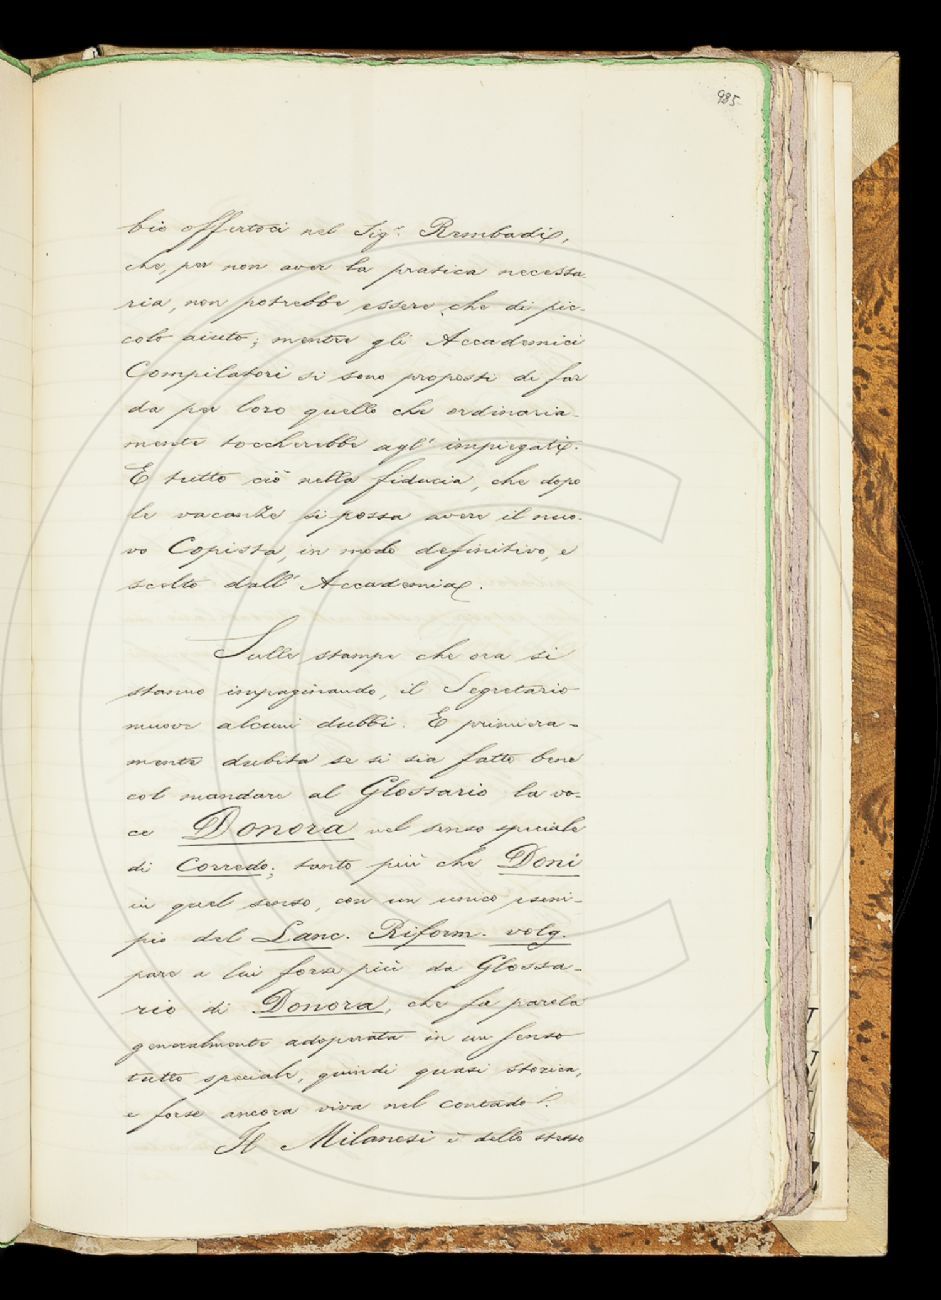 985
bio offertoci nel Sigr. Rembadi,
che, per non aver la pratica necessa
ria, non potrebbe essere che di pic-
colo aiuto; mentre gli Accademici
Compilatori si sono proposti di far
da per loro quello che ordinaria-
mente toccherebbe agl' impiegati.
E tutto ciò nella fiducia, che dopo
le vacanze si possa avere il nuo-
vo Copista, in modo definitivo, e
scelto dall' Accademia.
Sulle stampe che ora si
stanno impaginando, il Segretario
muove alcuni dubbi. E primiera-
mente dubita se si sia fatto bene
col mandare al Glossario la vo-
ce Donora nel senso speciale
di Corredo; tanto più che Doni
in quel senso, con un unico esem-
pio del Lanc. Riform. volg.
pare a lui forse più da Glossa-
rio di Donora, che fu parola
generalmente adoperata in un senso
tutto speciale, quindi quasi storica,
e forse ancora viva nel contado.
Il Milanesi è dello stesso